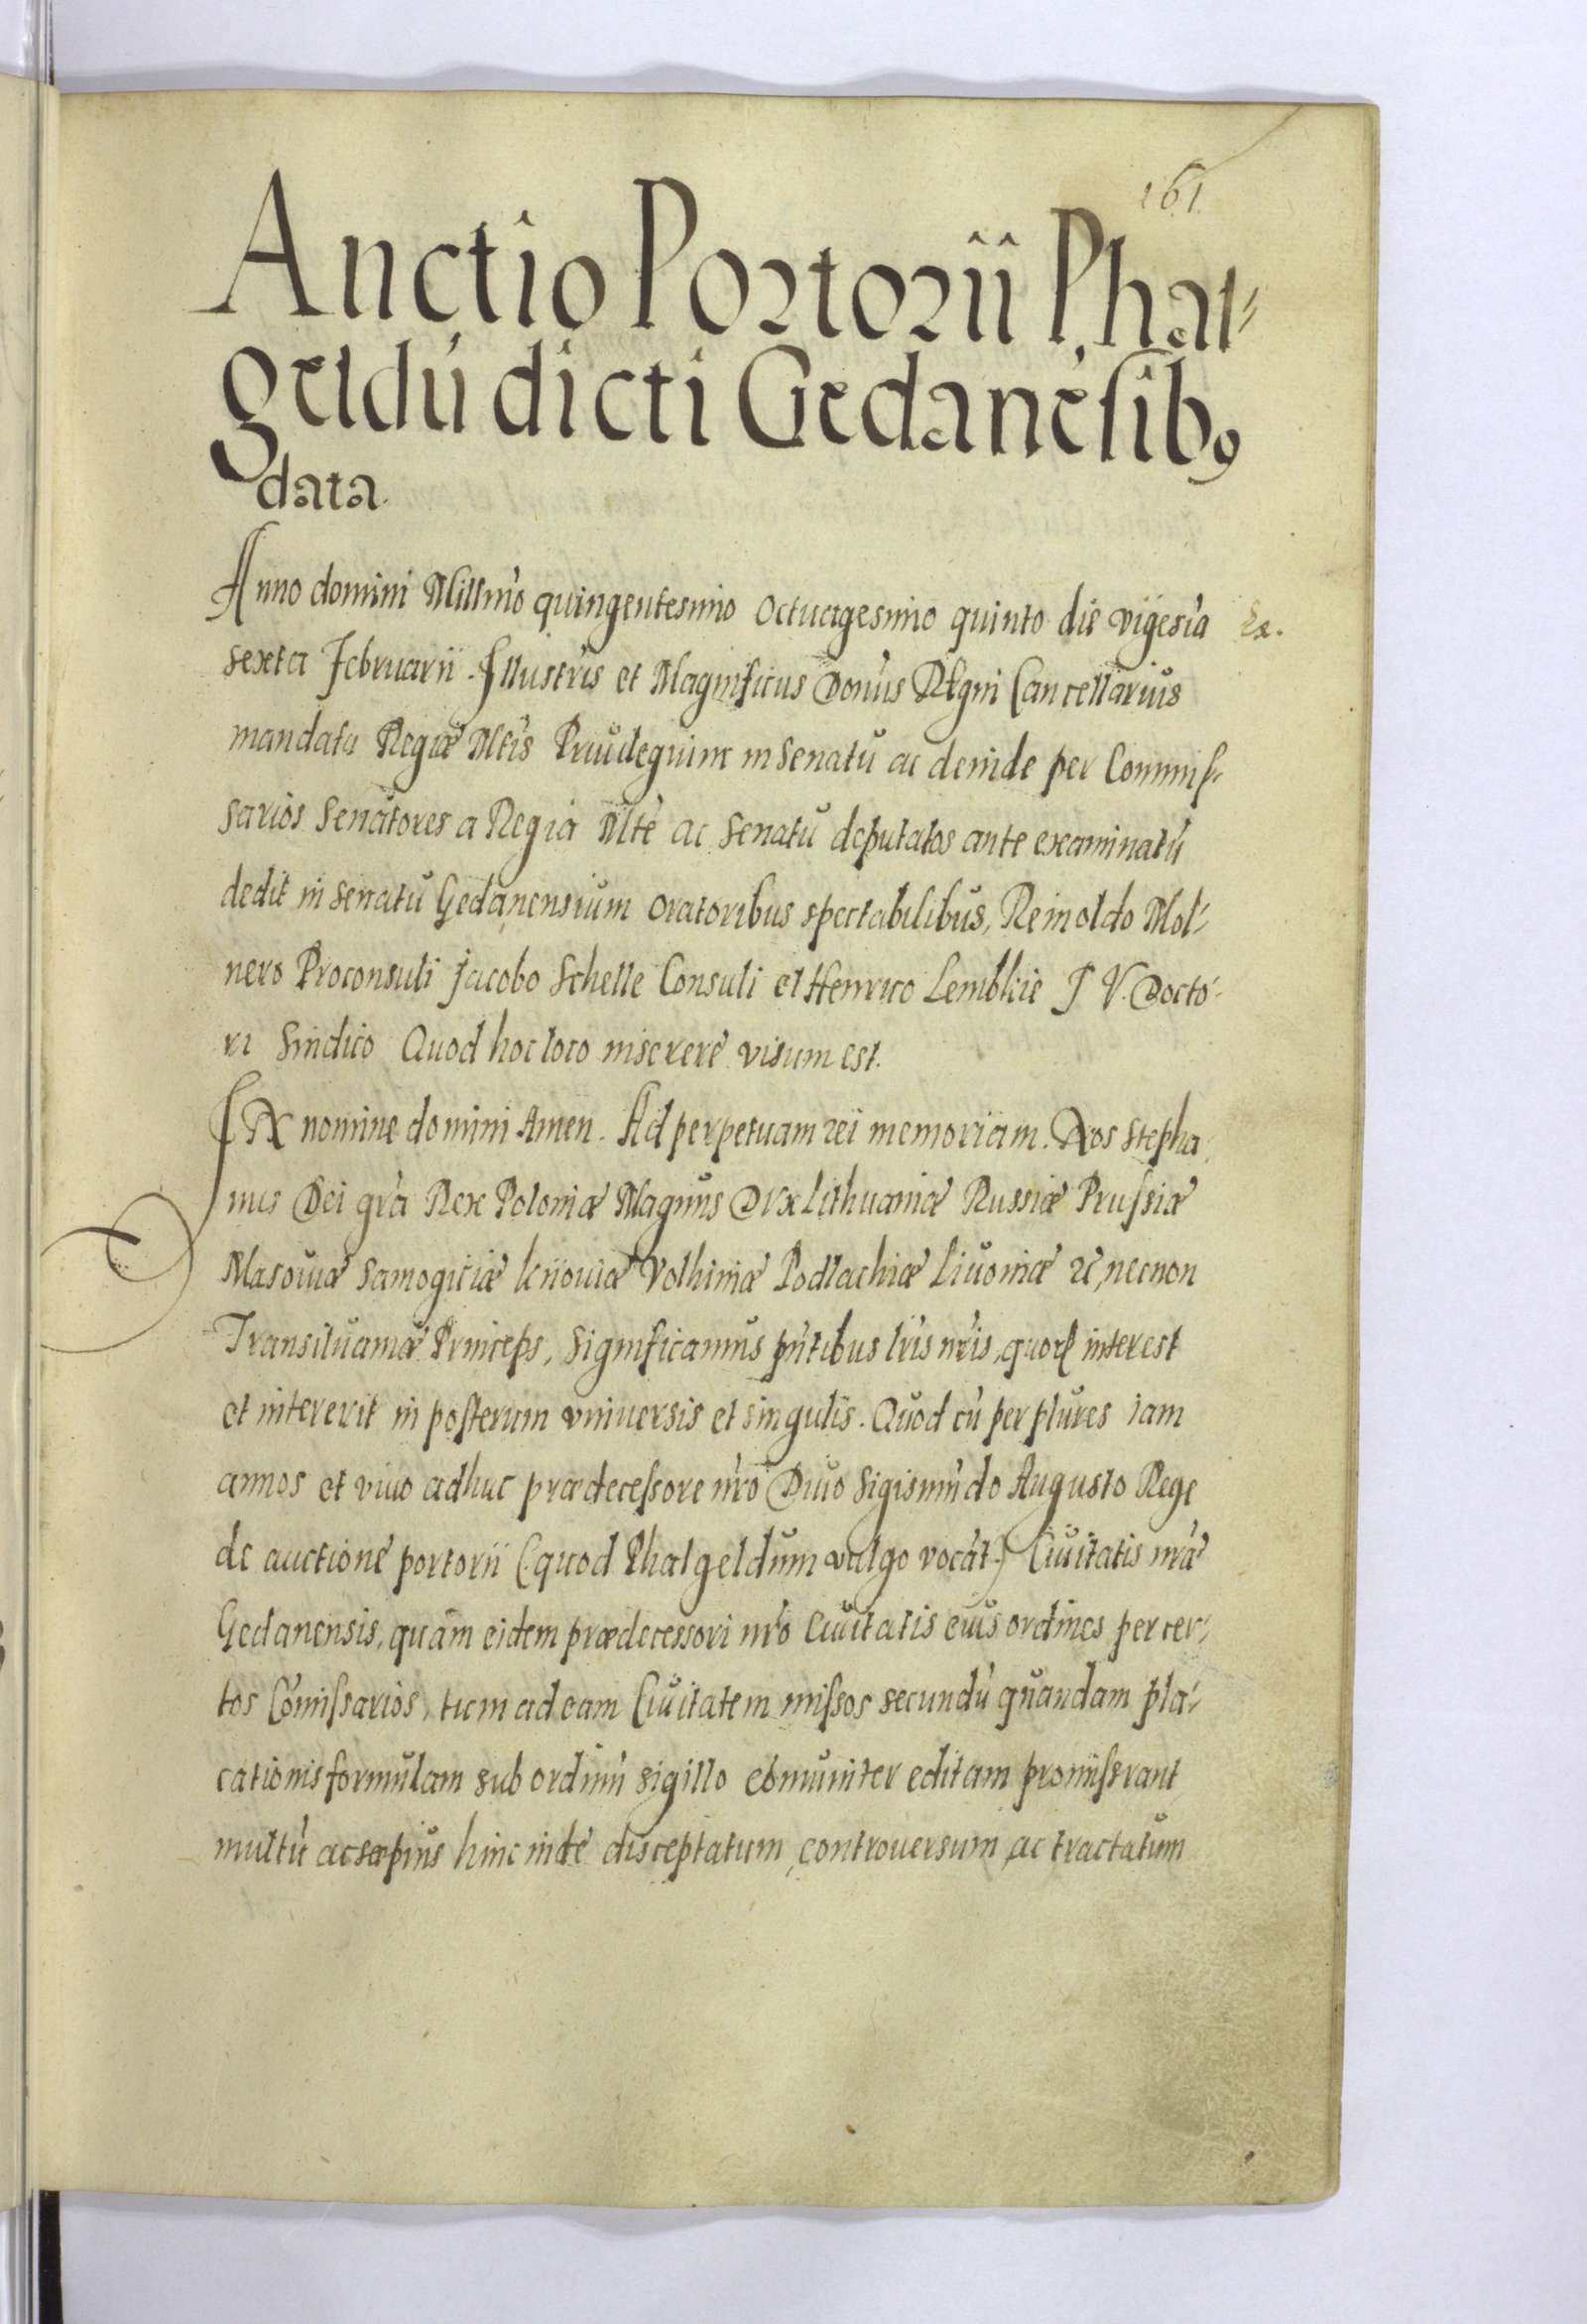 161
Auctio Portorii Phal-
geldū dicti Gedanēsibꝯ
data.
Anno domini Millm̄o quingentesimo Octuagesimo quinto die vigesīa
sexta Februarii. Illustris et Magnificus Don̄us Regni Cancellarius
mandato Regiæ Mt̄is Priuilegium in Senatu ac deinde per Commiſ-
sarios Senatores a Regia Mt̄e ac Senatu deputatos ante examinatū
dedit in senatu Gedanensium Oratoribus spectabilibus, Reinoldo Mol-
nero Proconsuli Jacobo Schelle Consuli et Henrico Lembkie J V. Docto-
ri Sindico Quod hoc loco inserere visum est.
IN nomine domini Amen. Ad perpetuam rei memoriam. Nos Stepha
nus Dei gr̄a Rex Poloniæ Magnus Dux Lithuaniæ Russiæ Pruſsiæ
Masouiæ Samogitiæ kiiouiæ Volhiniæ Podlachiæ Liuoniæ ꝛc, necnon
Transiluaniæ Princeps, Significamus pn̄tibus lr̄is nr̄is, quorꝝ interest
et intererit in poſterum vniuersis et singulis. Quod cū per plures iam
annos et viuo adhuc prædeceſsore nr̄o Diuo Sigismūdo Augusto Rege
de auctione portorii (quod Phalgeldum vulgo vocāt) Ciuitatis nr̄æ
Gedanensis, quam eidem prædecessori nr̄o Ciuitatis eius ordines per cer-
tos Cōmiſsarios, tum ad eam Ciuitatem miſsos secundū quandam pla-
cationis formulam sub ordinū sigillo cōmuniter editam promiſerant
multū ac sæpius hinc inde disceptatum, controuersum, ac tractatum